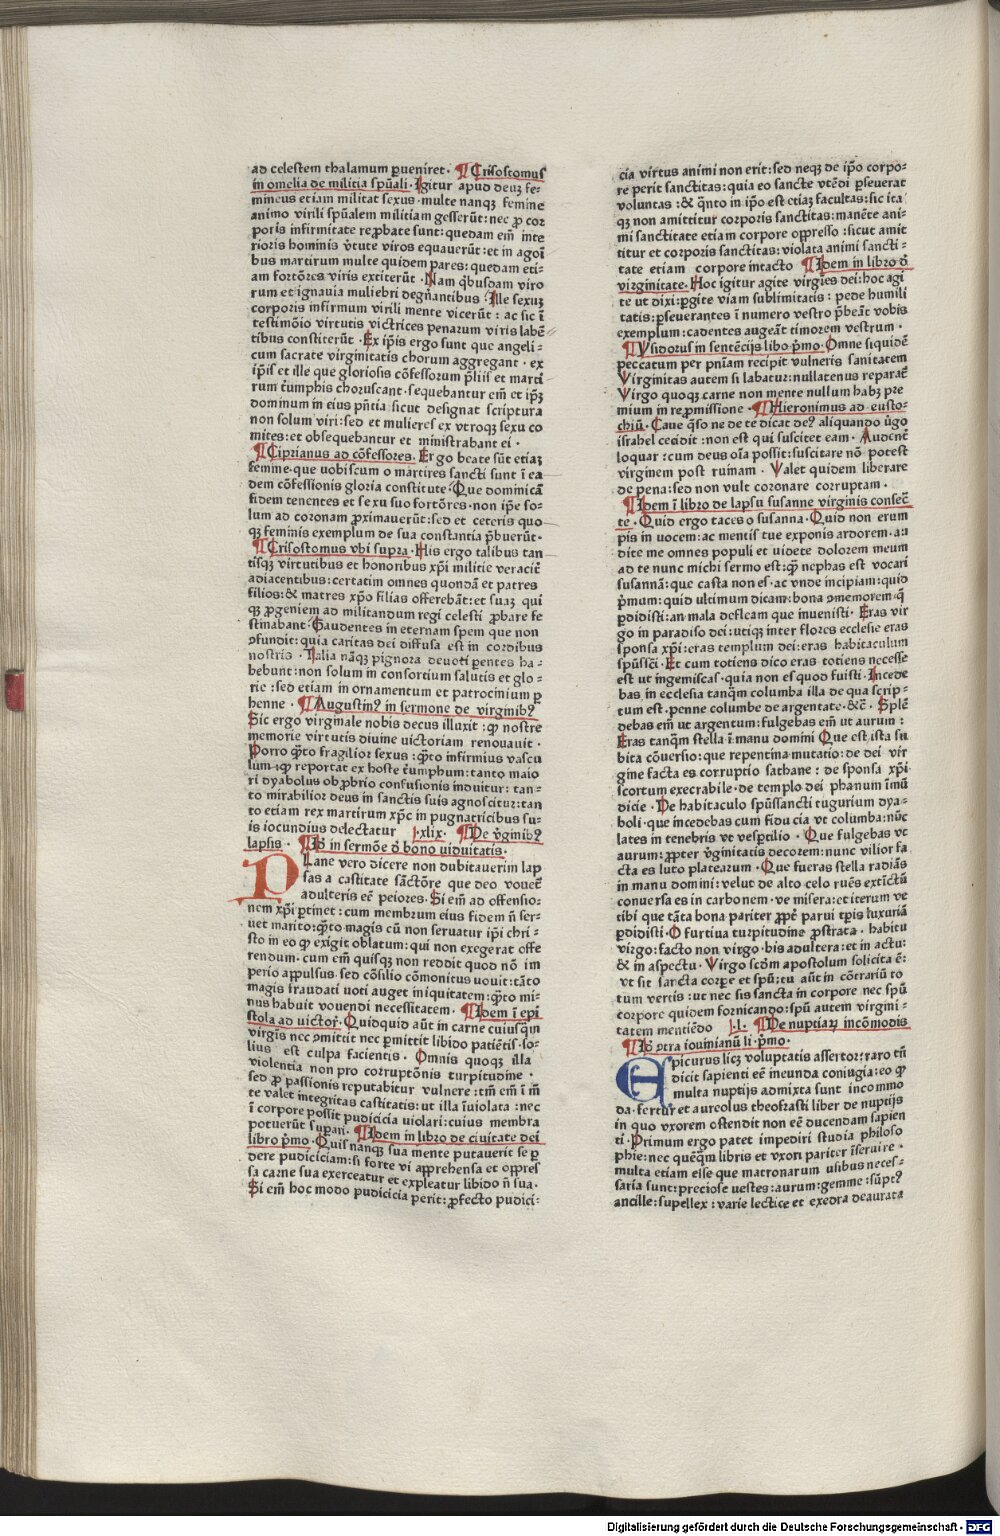 ad celestem thalamum ꝑueniret · ¶ Crisostomus
in omelia de militia spũali · Igitur apud deuꝫ fe-
mineus etiam militat sexus · multe nanqꝫ femine
animo virili spũalem militiam gesserũt : nec ꝓ cor
poris infirmitate reꝓbate sunt : quedam em̃ inte
rioris hominis v̾tute viros equauerũt : et in agoĩ
bus martirum multe quidem pares : quedam eti-
am fortõres viris extiterũt · Nam q̇busdam viro
rum et ignauia muliebri degñantibus · Ille sexuꝫ
corporis infirmum virili mente vicerũt : ac sic ĩ
testimõio virtutis victrices penarum viris labẽ
tibus constiterũt · Ex ip̃is ergo sunt que angeli-
cum sacrate virginitatis chorum aggregant · ex
ip̃is et ille que gloriosis cõfessorum p̃liis et marti
rum t̾umphis choruscant · sequebantur em̃ et ip̃ꝫ
dominum in eius p̃ntia sicut designat scriptura
non solum viri : sed et mulieres ex vtroqꝫ sexu co
mites : et obsequebantur et ministrabant ei ·
¶ Ciprianus ad cõfessores · Ergo beate sũt etiaꝫ
femine · que uobiscum o martires sancti sunt ĩ ea
dem cõfessionis gloria constitute · Que dominicã
fidem tenentes et sexu suo fortõres · non ip̃e so-
lum ad coronam ꝓximauerũt : sed et ceteris quo
qꝫ feminis exemplum de sua constantia p̃buerũt ·
¶ Crisostomus vbi supra · His ergo talibus tan
tisqꝫ virtutibus et honoribus xp̃i militie veracit̾
adiacentibus : certatim omnes quondã et patres
filios : & matres xp̃o filias offerebãt : et suaꝫ qui
qꝫ ꝓgeniem ad militandum regi celesti ꝓbare fe
stinabant · Gaudentes in eternam spem que non
ↄfundit : quia caritas dei diffusa est in cordibus
nostris · Talia nãqꝫ pignora deuoti ꝑentes ha-
bebunt : non solum in consortium salutis et glo-
rie : sed etiam in ornamentum et patrocinium ꝑ
henne · ¶ Augustinꝰ in sermone de virginibꝰ
Sic ergo virginale nobis decus illuxit : qꝫ nostre
memorie virtutis diuine victoriam renouauit ·
Porro qᷓto fragilior sexus : qᷓto infirmius vascu
lum · qꝫ reportat ex hoste t̾umphum : tanto maio
ri dyabolus obꝓbrio confusionis induitur : tan-
to mirabilior deus in sanctis suis agnoscitur : tan
to etiam rex martirum xp̃c in pugnatricibus su-
is iocundius delectatur l·xlix · ¶ De v̾ginibꝰ
lapsis · ¶ Ib̾ in sermõe d̾ bono uiduitatis ·
PLane vero dicere non dubitauerim lap
sas a castitate sãctõre que deo vouet̃
adulteris eẽ peiores · Si em̃ ad offensio-
nem xp̃i ꝑtinet : cum membrum eius fidem ñ ser-
uet marito : qᷓto magis cũ non seruatur ip̃i chri-
sto in eo qꝫ exigit oblatum : qui non exegerat offe
rendum · cum em̃ quisqꝫ non reddit quod nõ im
perio aꝑpulsus · sed cõsilio cõmonitus uouit : tãto
magis fraudati uoti auget iniquitatem : qᷓto mi-
nus habuit vouendi necessitatem · ¶ Idem ĩ epi
stola ad victor̃ · Quidquid aũt in carne cuiusqᷓm
virgĩs nec ↄmittit nec ꝑmittit libido patiẽtis · so-
lius est culpa facientis · Omnis quoqꝫ illa
violentia non pro corruptõnis turpitudine ·
sed ꝓ passionis reputabitur vulnere : tm̃ em̃ ĩ m̃
te valet integritas castitatis : ut illa ĩuiolata : nec
ĩ corpore possit pudicicia violari : cuius membra
potuerũt suꝑari · ¶ Idem in libro de ciuitate dei
libro p̾mo · Quis nanqꝫ sua mente putauerit se ꝑ
dere pudiciciam : si forte vi aꝓrehensa et oppres
sa carne sua exerceatur et expleatur libido ñ sua ·
Si em̃ hoc modo pudicicia perit : ꝓfecto pudici-
cia virtus animi non erit : sed neqꝫ de ip̃o corpo-
re perit sanctitas : quia eo sancte vtẽdi ꝑseuerat
voluntas : & q̃nto in ip̃o est etiaꝫ facultas : sic ita
qꝫ non amittitur corporis sanctitas : manẽte ani-
mi sanctitate etiam corpore oppresso : sicut amit
titur et corporis sanctitas : violata animi sancti-
tate etiam corpore intacto ¶ Idem in libro d̾
virginitate · Hoc igitur agite virgĩes dei : hoc agi
te ut dixi : ꝑgite viam sublimitatis : pede humili
tatis : ꝑseuerantes ĩ numero vestro p̃beãt vobis
exemplum : cadentes augeãt timorem vestrum ·
¶ Ysidorus in sentẽcijs libo p̾mo · Omne siquidẽ
peccatum per pñiam recipit vulneris sanitatem
Virginitas autem si labatur : nullatenus reparat̃
Virgo quoqꝫ carne non mente nullum habꝫ pre
mium in reꝓmissione · ¶ Hieronimus ad eusto-
chiũ · Caue q̃so ne de te dicat deꝰ aliquando v̾go
israhel cecidit : non est qui suscitet eam · Audent̾
loquar : cum deus oĩa possit : suscitare nõ potest
virginem post ruinam · Valet quidem liberare
de pena : sed non vult coronare corruptam ·
¶ Idem ĩ libro de lapsu susanne virginis consec̃
te · Quid ergo taces o susanna · Quid non erum
pis in uocem : ac mentis tue exponis ardorem · au
dite me omnes populi et uidete dolorem meum
ad te nunc michi sermo est : qꝫ nephas est vocari
susannã : que casta non es · ac vnde incipiam : quid
p̾mum : quid ultimum dicam : bona ↄmemorem q̃
ꝑdidisti : an mala defleam que inuenisti · Eras vir
go in paradiso dei : utiqꝫ inter flores ecclesie eras
sponsa xp̃i : eras templum dei : eras habitaculum
spũsscĩ · Et cum totiens dico eras totiens necesse
est ut ingemiscas · quia non es quod fuisti · Incede
bas in ecclesia tanqᷓm columba illa de qua scrip-
tum est · penne columbe de argentate · &c̃ · Splẽ
debas em̃ ut argentum : fulgebas em̃ ut aurum :
Eras tanqᷓm stella ĩ manu domini Que est ista su
bita cõuersio : que repentina mutatio : de dei vir
gine facta es corruptio sathane : de sponsa xp̃i
scortum execrabile · de templo dei phanum ĩmũ
dicie · De habitaculo spũssancti tugurium dya-
boli · que incedebas cum fiducia vt columba : nũc
lates in tenebris vt vesꝑtilio · Que fulgebas vt
aurum : ꝓpter v̾ginitatis decorem : nunc vilior fa
cta es luto platearum · Que fueras stella radiãs
in manu domini : velut de alto celo ruẽs extĩctũ
conuersa es in carbonem · ve misera : et iterum ve
tibi que tãta bona pariter ꝓpt̾ parui tꝑis luxuriã
ꝑdidisti · O furtiua turpitudine ꝓstrata · habitu
virgo : facto non virgo · bis adultera : et in actu :
& in aspectu · Virgo scd̃m apostolum solicita ẽ :
vt sit sancta corꝑe et spũ : tu aũt in cõtrariũ to
tum vertis : ut nec sis sancta in corpore nec spũ
corpore quidem fornicando : spũ autem virgini-
tatem mentiẽdo l·l· ¶ De nuptiaꝝ incõmodis
¶ Ib̾ ↄtra iouinianũ li · p̾mo ·
EPicurus licꝫ voluptatis assertor : raro tñ
dicit sapienti eẽ ineunda coniugia : eo qꝫ
multa nuptijs admixta sunt incommo
da · fertur et aureolus theofrasti liber de nuptijs
in quo vxorem ostendit non eẽ ducendam sapien
ti · Primum ergo patet impediri studia philoso
phie : nec quẽqᷓm libris et vxori pariter ĩseruire ·
multa etiam esse que matronarum usibus neces-
saria sunt : preciose vestes : aurum : gemme : sũptꝰ
ancille : supellex : varie lectice et exedra deaurata
Digitalisierung gefördert durch die Deutsche Forschungsgemeinschaft - DFG